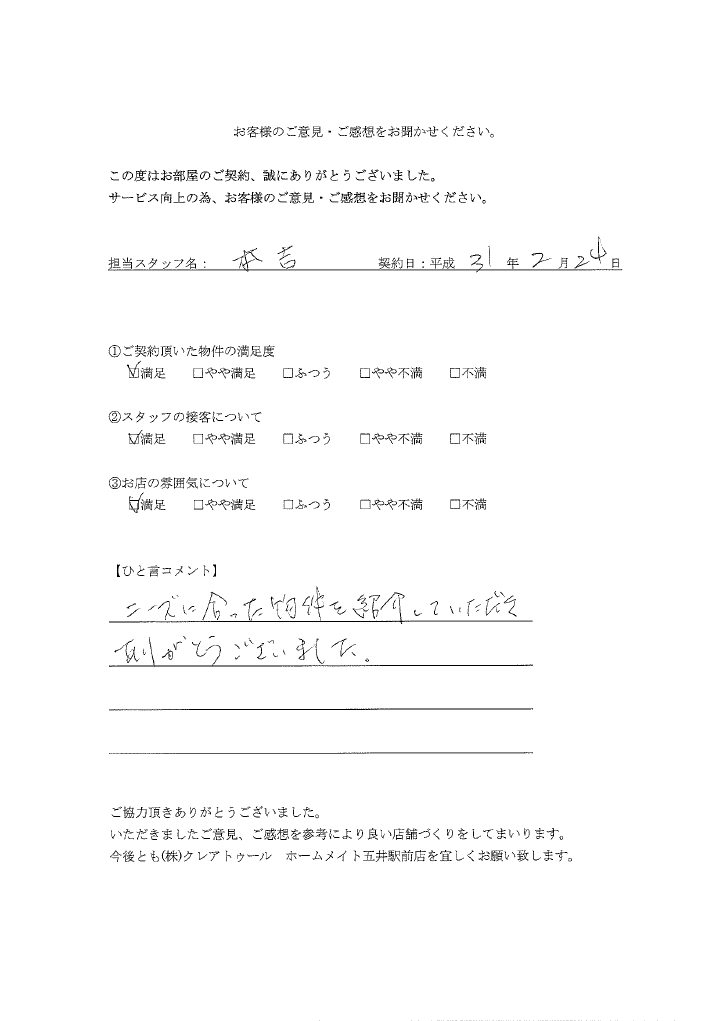 お客様のご意見・ご感想をお聞かせください。
この度はお部屋のご契約、誠にありがとうございました。
サービス向上の為、お客様のご意見・ご感想をお聞かせください。
担当スタッフ名： 秋吉 契約日：平成 31 年 2 月 24 日
①ご契約頂いた物件の満足度
☑満足 □やや満足 □ふつう □やや不満 □不満
②スタッフの接客について
☑満足 □やや満足 □ふつう □やや不満 □不満
③お店の雰囲気について
☑満足 □やや満足 □ふつう □やや不満 □不満
【ひと言コメント】
ニーズに合った物件を紹介していただき
ありがとうございました。
ご協力頂きありがとうございました。
いただきましたご意見、ご感想を参考により良い店舗づくりをしてまいります。
今後とも(株)クレアトゥール　ホームメイト五井駅前店を宜しくお願い致します。